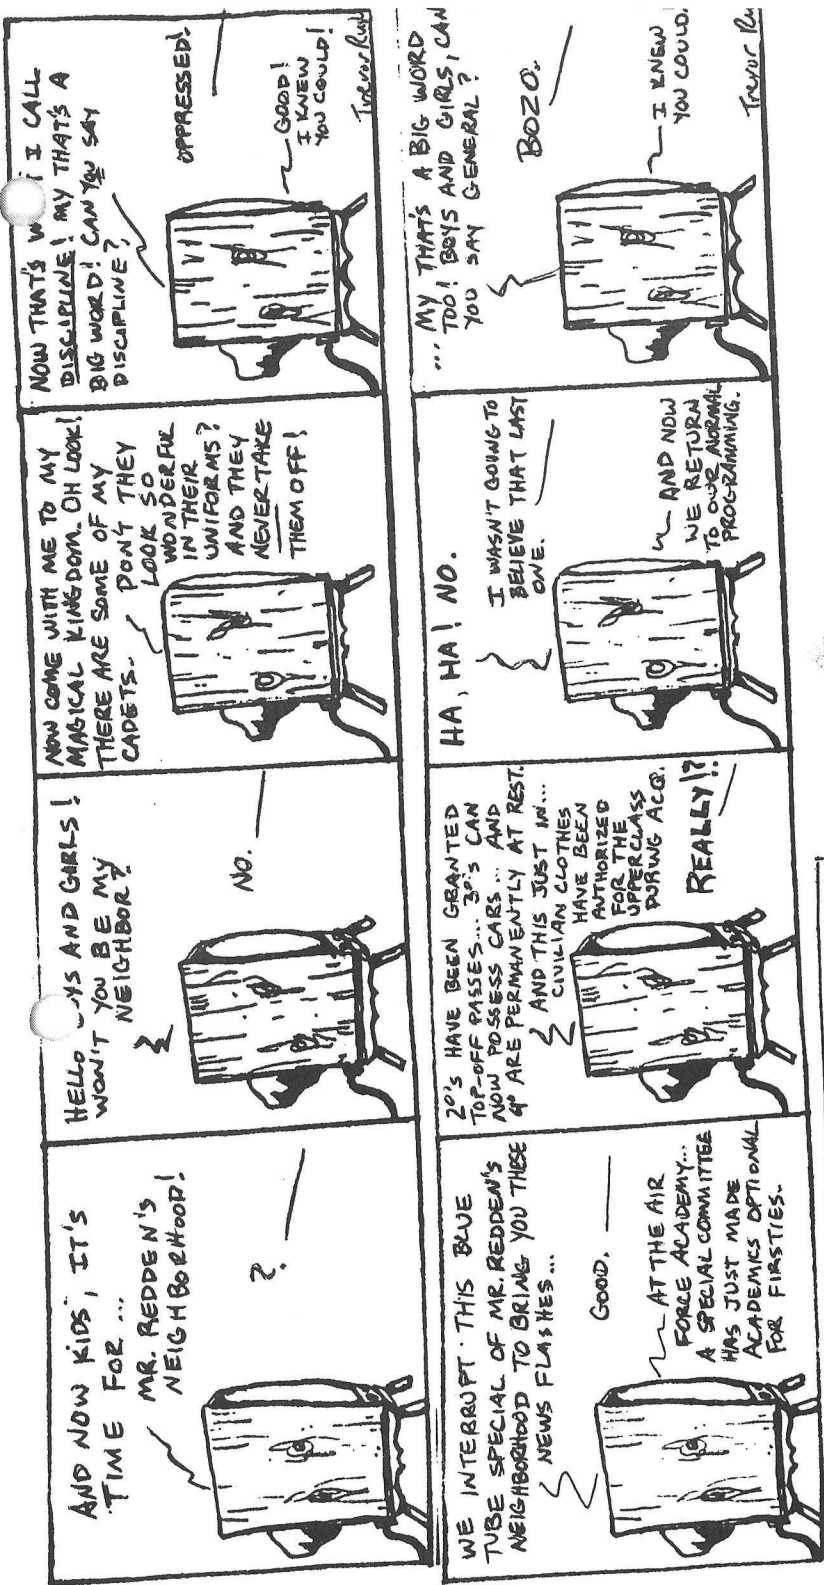 AND NOW KIDS, IT'S
TIME FOR ...
MR. REDDEN'S
NEIGHBORHOOD!
?.
HELLO YS AND GIRLS!
WON'T YOU BE MY
NEIGHBOR?
NO.
NOW COME WITH ME TO MY
MAGICAL KINGDOM. OH LOOK!
THERE ARE SOME OF MY
CADETS. DON'T THEY
LOOK SO
WONDERFUL
IN THEIR
UNIFORMS?
AND THEY
NEVER TAKE
THEM OFF!
NOW THAT'S W T I CALL
DISCIPLINE! MY THAT'S A
BIG WORD! CAN YOU SAY
DISCIPLINE?
OPPRESSED!
GOOD!
I KNEW
YOU COULD!
Trevor
WE INTERRUPT THIS BLUE
TUBE SPECIAL OF MR. REDDEN'S
NEIGHBORHOOD TO BRING YOU THESE
NEWS FLASHES...
GOOD.
AT THE AIR
FORCE ACADEMY...
A SPECIAL COMMITTEE
HAS JUST MADE
ACADEMICS OPTIONAL
FOR FIRSTIES.
2°'s HAVE BEEN GRANTED
TOP-OFF PASSES... 3°'s CAN
NOW POSSESS CARS... AND
4° ARE PERMANENTLY AT REST.
AND THIS JUST IN...
CIVILIAN CLOTHES
HAVE BEEN
AUTHORIZED
FOR THE
UPPERCLASS
DURING ACQ.
REALLY!?
HA, HA! NO.
I WASN'T GOING TO
BELIEVE THAT LAST
ONE.
AND NOW
WE RETURN
TO OUR NORMAL
PROGRAMMING.
... MY THAT'S A BIG WORD
TOO! BOYS AND GIRLS, CAN
YOU SAY GENERAL?
BOZO.
I KNEW
YOU COULD.
Trevor